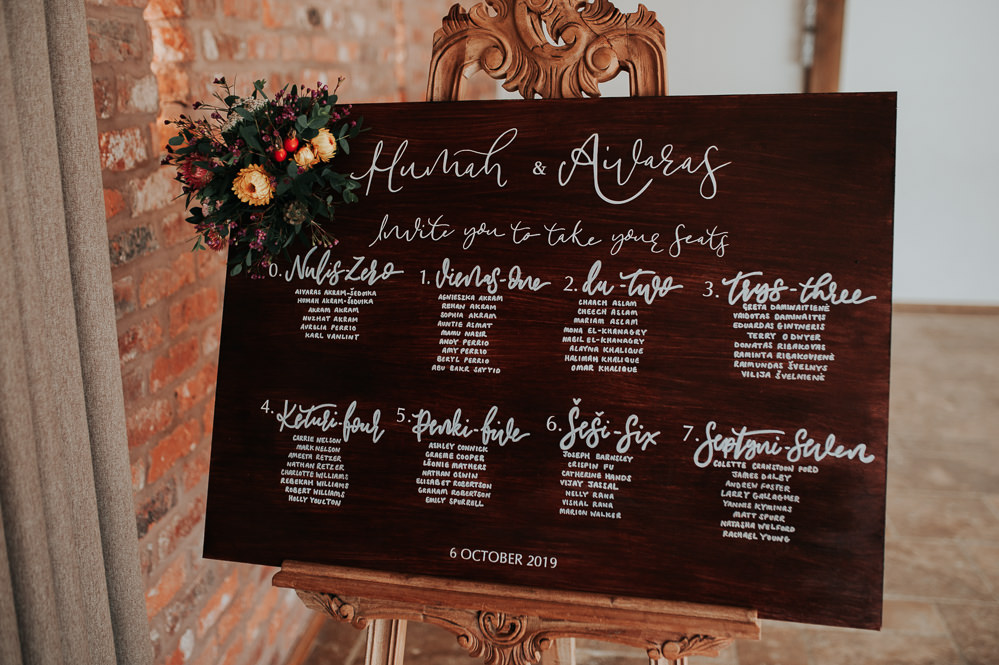 Humah & Aivaras
Invite you to take your Seats
0. Nulis-Zero
AIVARAS AKRAM-ŠEDUIKA
HUMAH AKRAM-ŠEDUIKA
AKRAM AKRAM
NUZHAT AKRAM
AURELIA PERRIO
KARL VANLINT
1. Vienas-One
AGNIESZKA AKRAM
REHAN AKRAM
SOPHIA AKRAM
AUNTIE ASMAT
MAMU NASIR
ANDY PERRIO
AMY PERRIO
BERYL PERRIO
ABU BAKR SAYYID
2. du-two
CHAACH ASLAM
CHEECH ASLAM
MARIAM ASLAM
MONA EL-KHANAGRY
NABIL EL-KHANAGRY
ALAYNA KHALIQUE
HALIMAH KHALIQUE
OMAR KHALIQUE
3. Trys-three
GRETA DAMINAITIENĖ
VAIDOTAS DAMINAITIS
EDUARDAS GINTNERIS
TERRY O DWYER
DONATAS RIBAKOVAS
RAMINTA RIBAKOVIENĖ
RAIMUNDAS ŠVELNYS
VILIJA ŠVELNIENĖ
4. Keturi-four
CARRIE NELSON
MARK NELSON
AMEETA RETZER
NATHAN RETZER
CHARLOTTE WILLIAMS
REBEKAH WILLIAMS
ROBERT WILLIAMS
HOLLY YOULTON
5. Penki-five
ASHLEY CONNICK
GRAEME COOPER
LÉONIE MATHERS
NATHAN OLWIN
ELIZABET ROBERTSON
GRAHAM ROBERTSON
EMILY SPURRELL
6. Šeši-Six
JOSEPH BARNSLEY
CRISPIN FU
CATHERINE HANDS
VIJAY JASSAL
NELLY RANA
VISHAL RANA
MARION WALKER
7. Septyni-Seven
COLETTE CRANSTOON FORD
JAMES DALBY
ANDREW FOSTER
LARRY GALLAGHER
YANNIS KYMINAS
MATT SPURR
NATASHA WELFORD
RACHAEL YOUNG
6 OCTOBER 2019